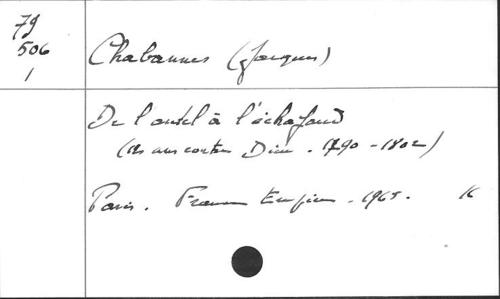 79
506
1
Chabannes (Jacques)
De l'autel à l'échafaud
(12 ans contre Dieu. 1790-1802)
Paris. France Empire. 1965. 16